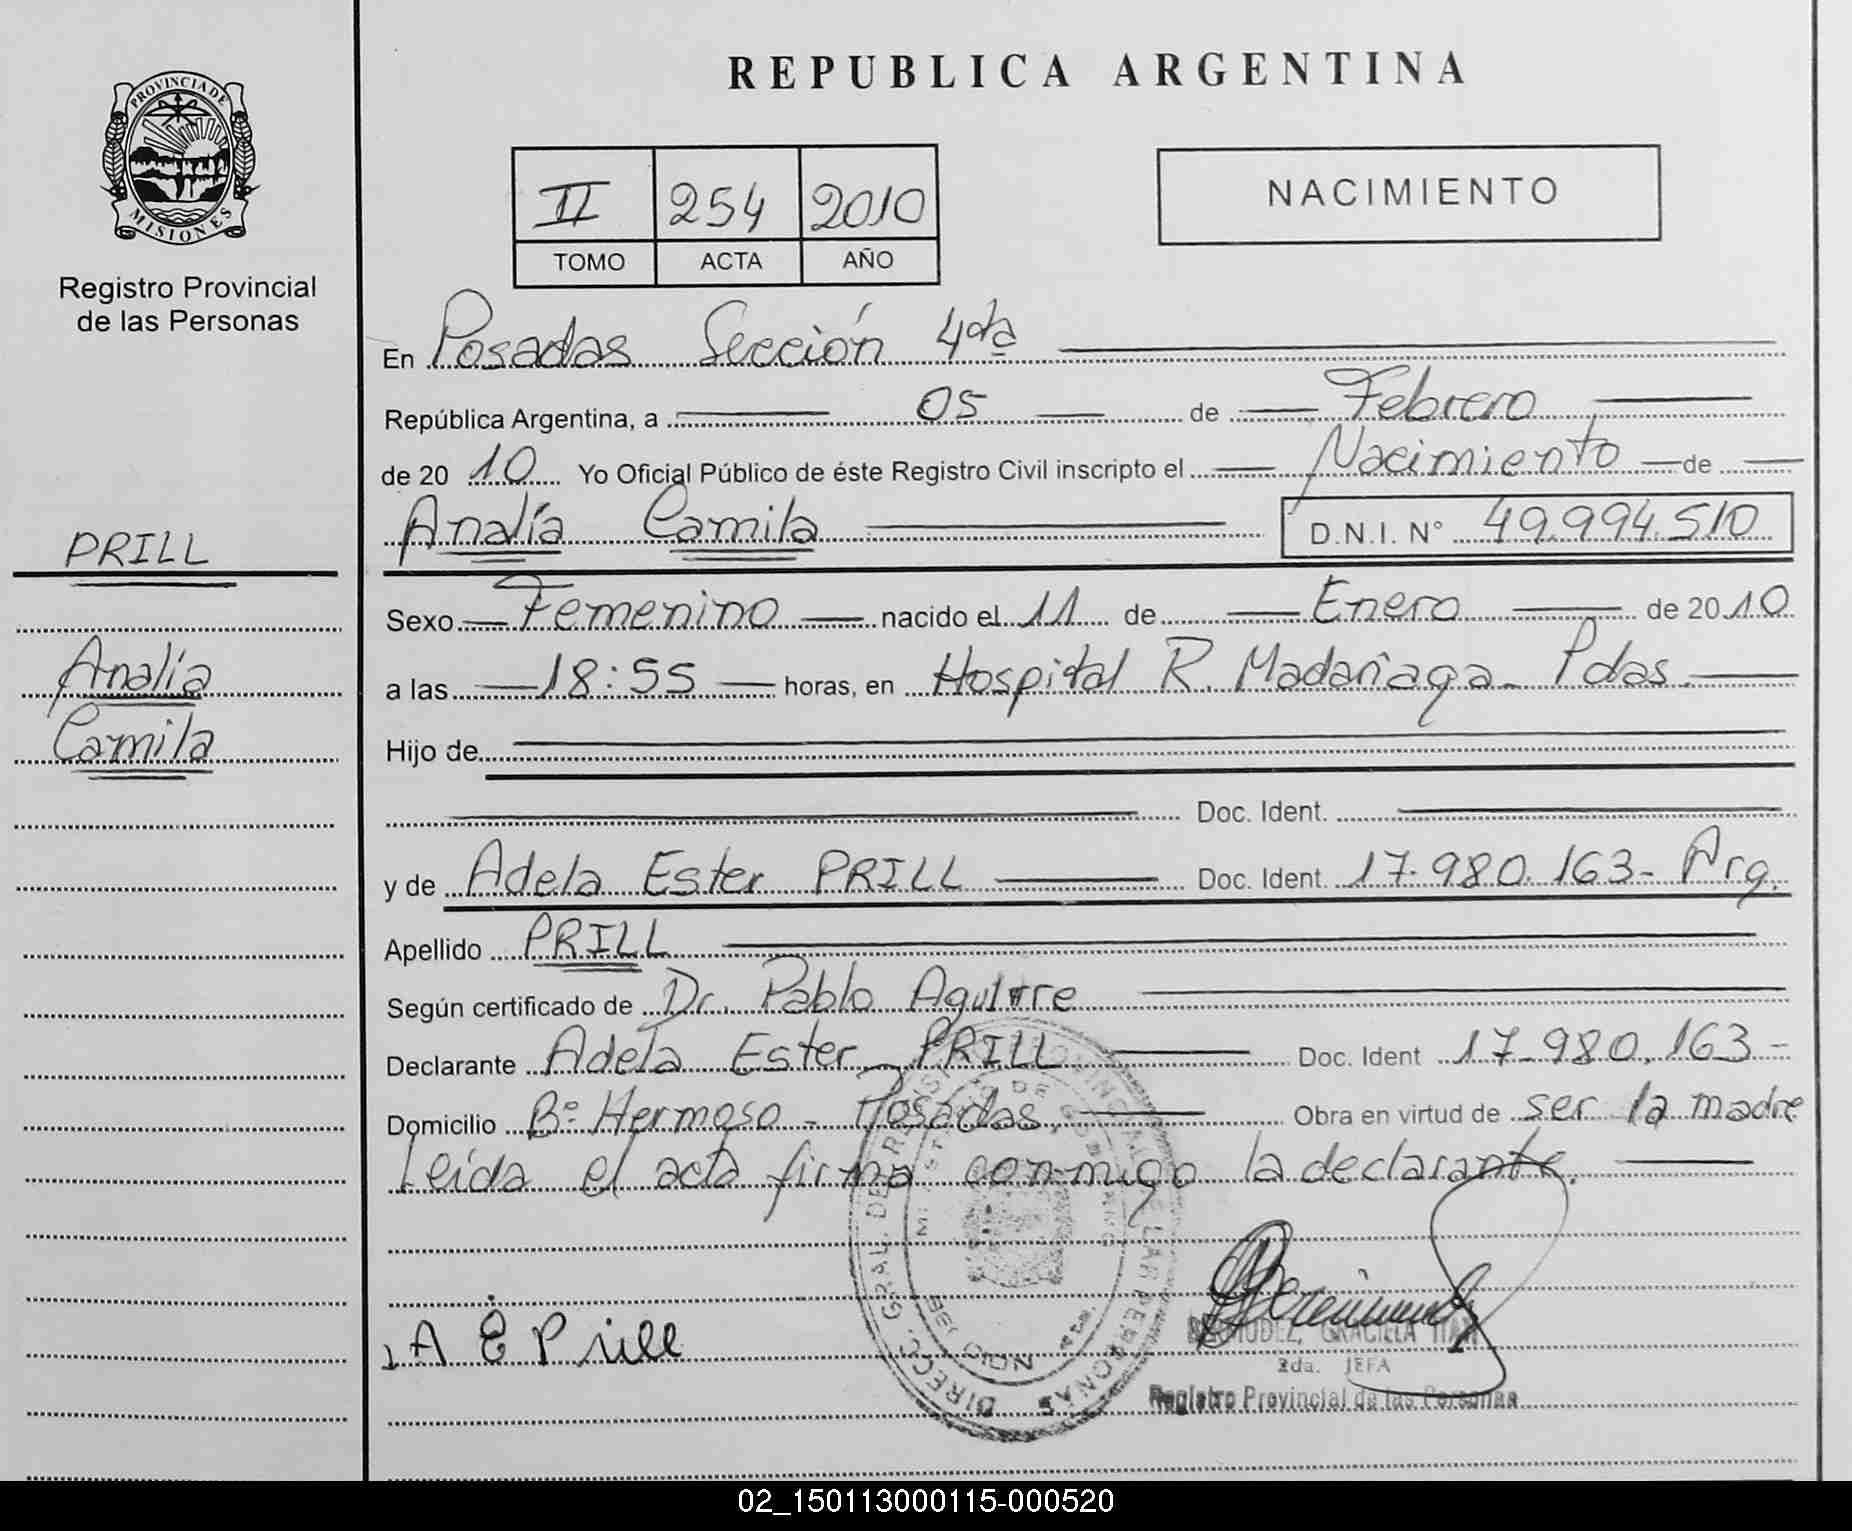 REPUBLICA ARGENTINA
PROVINCIA DE
MISIONES
Registro Provincial
de las Personas
II 254 2010
TOMO ACTA AÑO
NACIMIENTO
En Posadas Sección 4da
República Argentina, a 05 de Febrero
de 2010 Yo Oficial Público de éste Registro Civil inscripto el Nacimiento de
Analía Camila D.N.I. N° 49.994.510
PRILL
Analía
Camila
Sexo Femenino nacido el 11 de Enero de 2010
a las 18:55 horas, en Hospital R. Madariaga - Pdas.
Hijo de
Doc. Ident.
y de Adela Ester PRILL Doc. Ident. 17.980.163- Arg.
Apellido PRILL
Según certificado de Dr. Pablo Aguirre
Declarante Adela Ester PRILL Doc. Ident 17-980.163-
Domicilio B° Hermoso - Posadas, Obra en virtud de ser la madre
Leída el acta firma conmigo la declarante.
A E Prill
BERMUDEZ, GRACIELA
2da. JEFA
Registro Provincial de las Personas
02_150113000115-000520